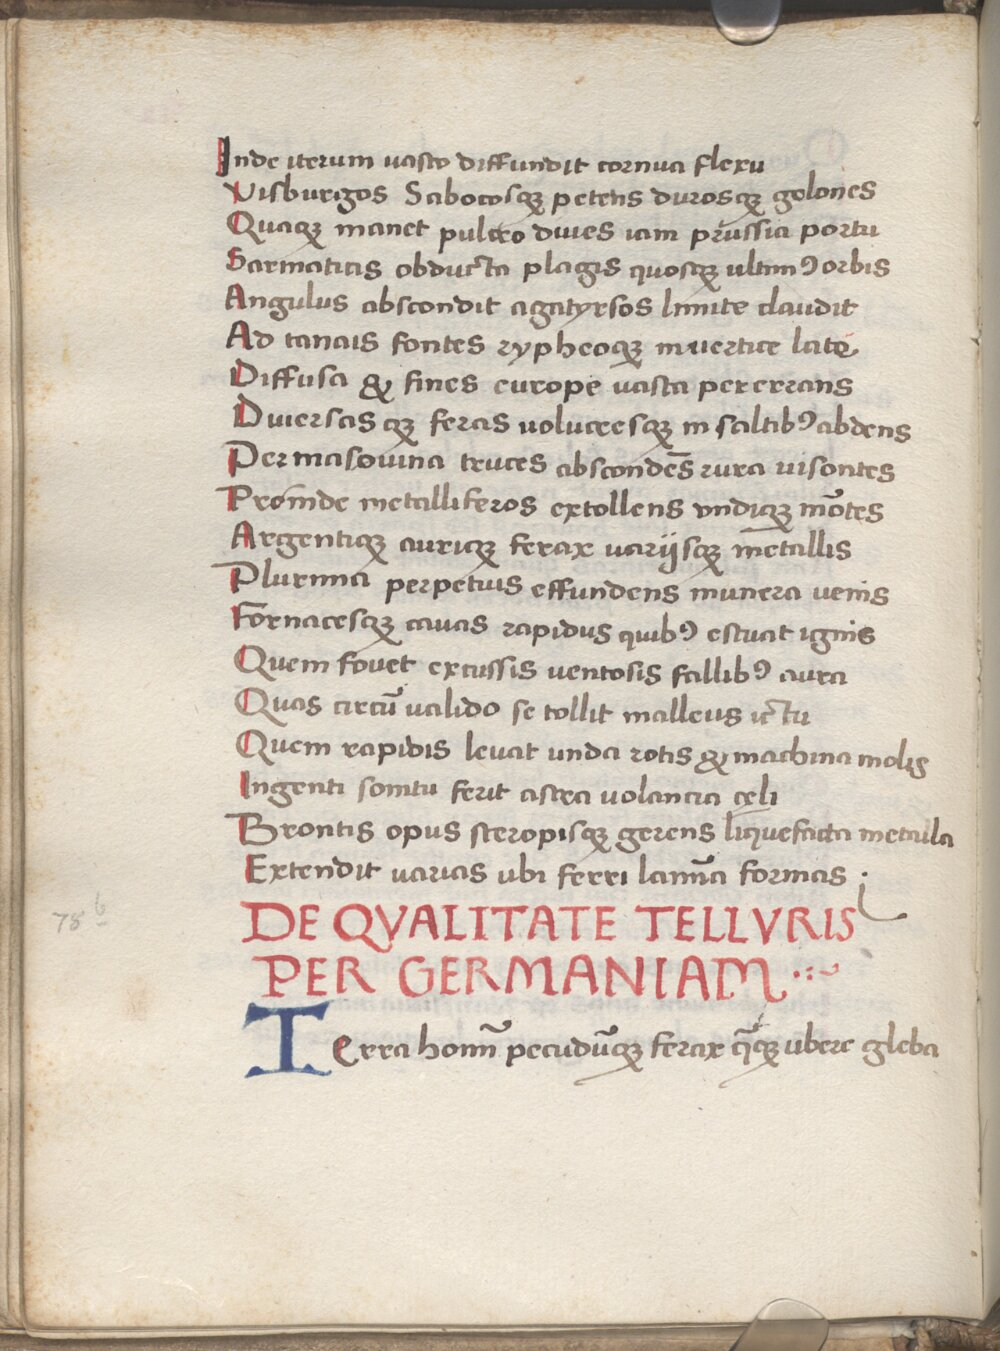 Inde iterum uasto diffundit cornua flexu
Visburigos Sabocosqꝫ petens durosqꝫ golones
Quaqꝫ manet pulcro diues iam prussia portu
Sarmaticis obducta plagis quosqꝫ ultimꝰ orbis
Angulus abscondit agatyrsos limite claudit
Ad tanais fontes rypheoqꝫ in uertice late
Diffusa & fines europe uasta pererrans
Diuersas qꝫ feras uolucresqꝫ in saltibꝰ abdens
Per masouina truces abscondēs rura uisontes
Proinde metalliferos extollens vndiqꝫ mōtes
Argentiqꝫ auriqꝫ ferax uarijsqꝫ metallis
Plurima perpetuis effundens munera uenis
Fornacesqꝫ cauas rapidus quibꝰ estuat ignis
Quem fouet excussis uentosis follibꝰ aura
Quas circū ualido se tollit malleus ictu
Quem rapidis leuat unda rotis & machina molis
Ingenti sonitu ferit astra uolancia cęli
Brontis opus steropisqꝫ gerens liquefacta metalla
Extendit uarias ubi ferri lamīa formas
DE QVALITATE TELLVRIS
PER GERMANIAM
Terra homī pecudūqꝫ ferax q̄qꝫ ubere gleba
78 b